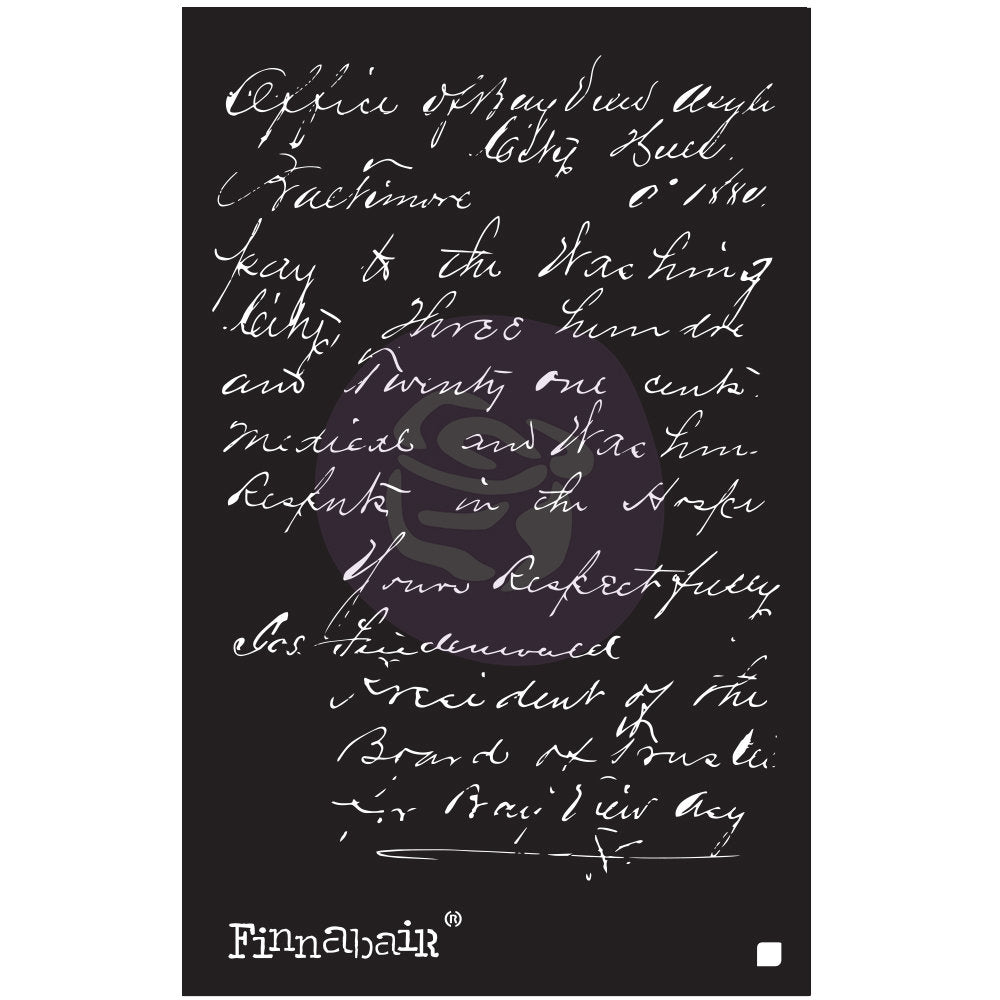 Office of Bay View Asyl
City Buil.
Baltimore 1880.
pay to the Washing
City, Three hun dre
and Twenty one cents.
Medical and Washin.
in the Hospi
Yours Respectfully
Jos. Friedenwald
President of the
Board of Trustee
for Bay View Asy
Finnabair®